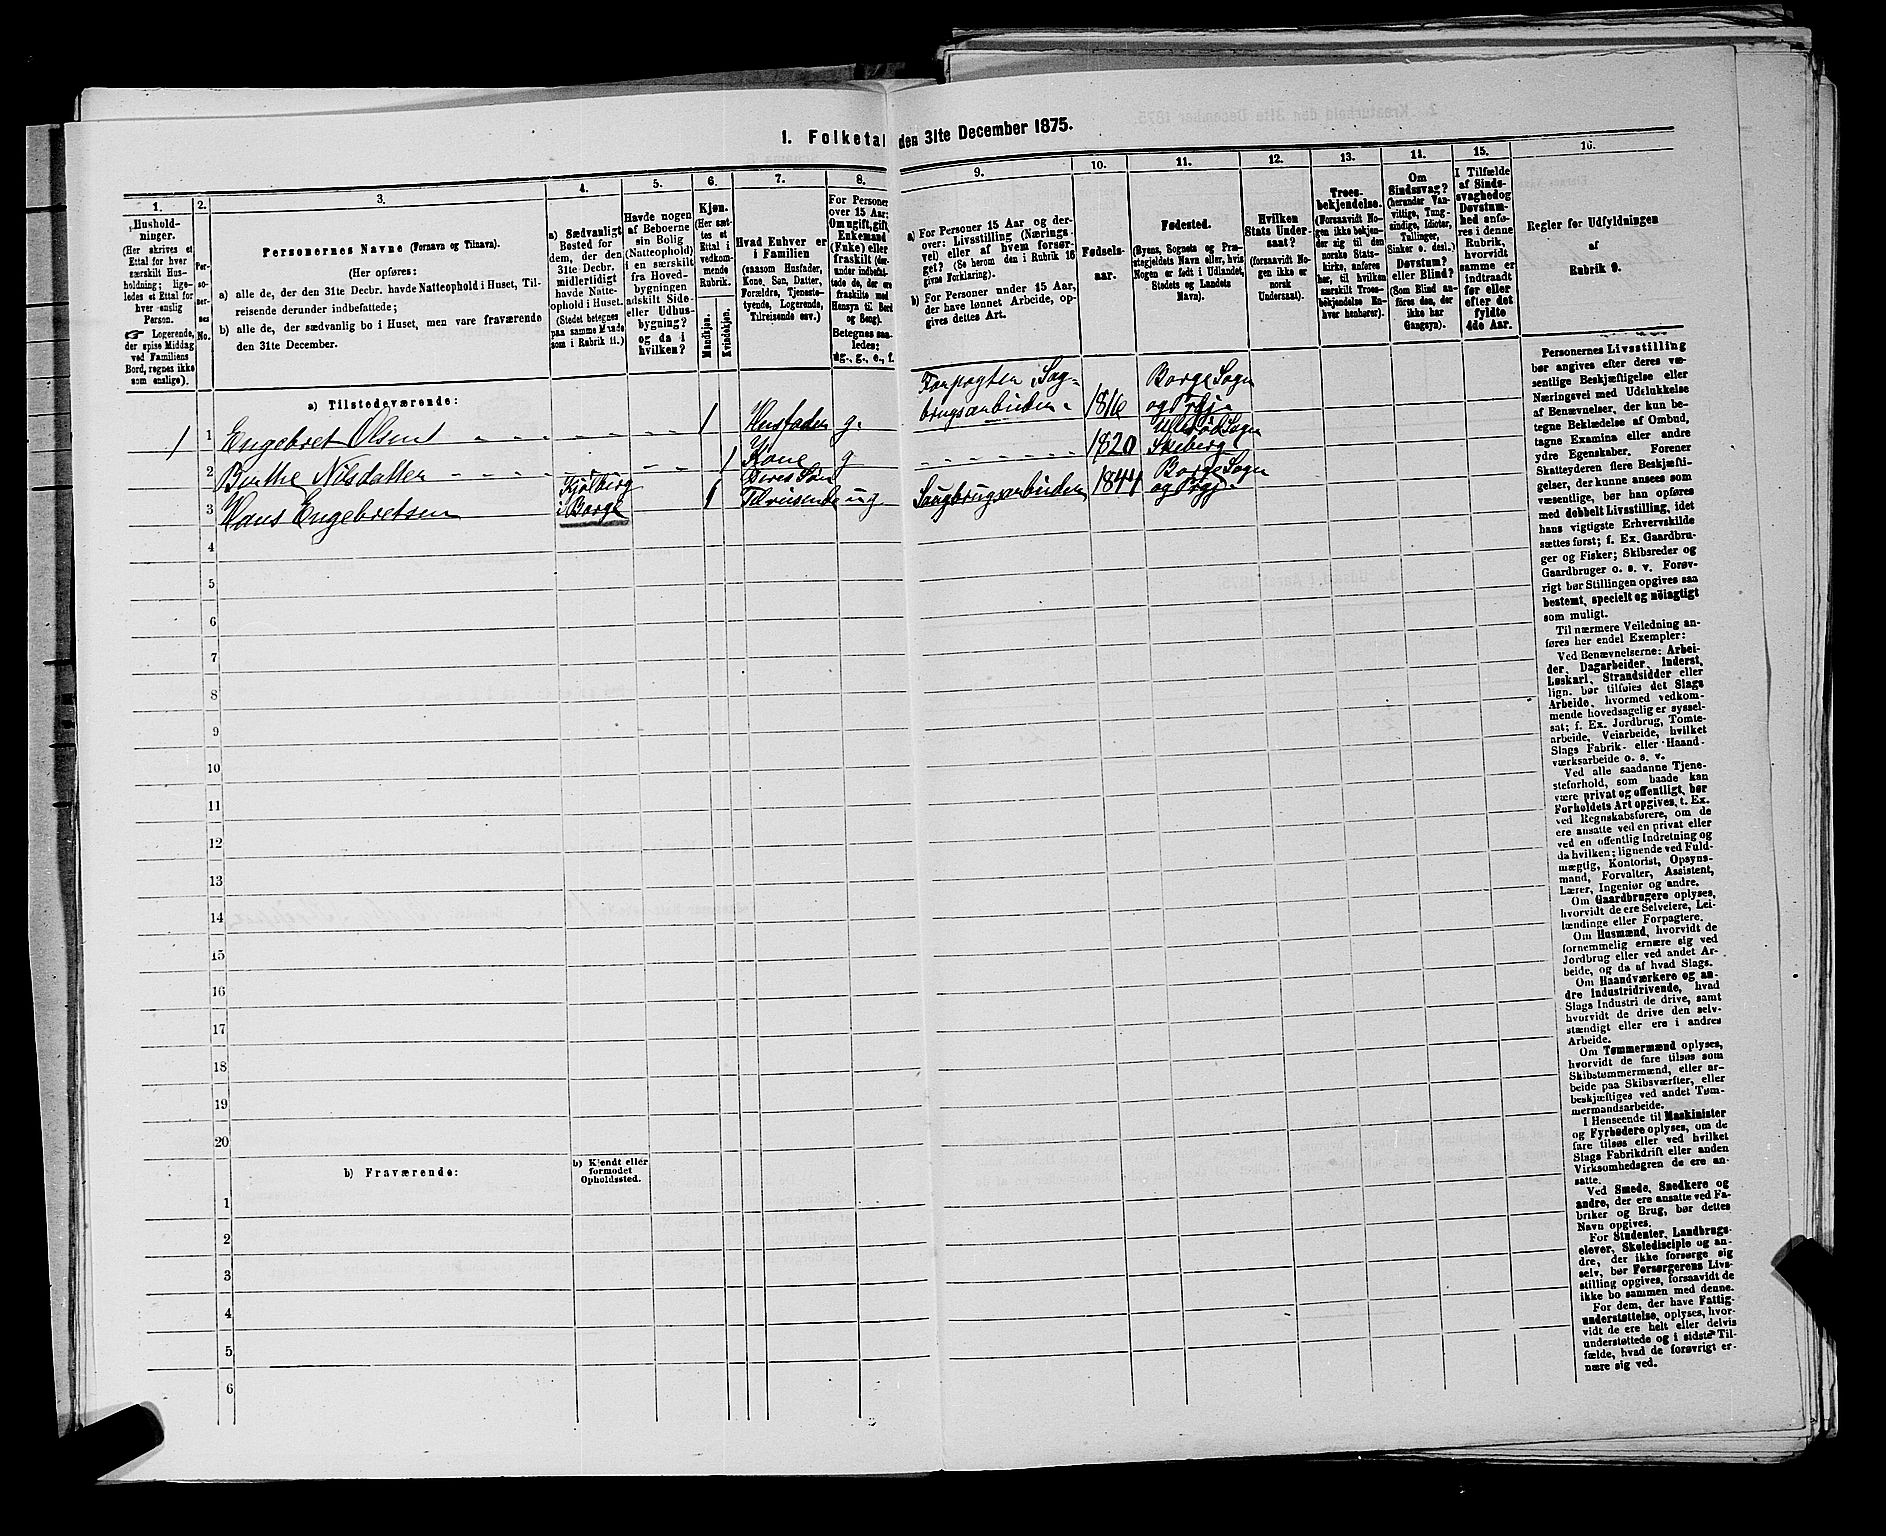 1. Folketal den 31te December 1875.
1.
Husholdninger.
(Her skrives et
Ettal for hver
særskilt Husholdning;
ligeledes et Ettal for
hver enslig
Person.
☞ Logerende,
der spise Middag
ved Familiens
Bord, regnes ikke
som enslige).
2.
Personernes
No.
3.
Personernes Navne (Fornavn og Tilnavn).
(Her opføres:
a) alle de, der den 31te Decbr. havde Natteophold i Huset, Tilreisende
derunder indbefattede;
b) alle de, der sædvanlig bo i Huset, men vare fraværende
den 31te December.
4.
a) Sædvanligt
Bosted for
dem, der den
31te Decbr.
midlerlidigt
havde Natteophold
i Huset.
(Stedet betegnes
paa samme Maade
som i Rubrik 11.)
5.
Havde nogen
af Beboerne
sin Bolig
(Natteophold)
i en særskilt
fra Hovedbygningen
adskilt Side-
eller Udhusbygning?
og da i
hvilken?
6.
Kjøn.
(Her sættes
et
Ettal i
vedkommende
Rubrik.
Mandkjøn.
Kvindekjøn.
7.
Hvad Enhver er
i Familien
(saasom Husfader,
Kone, Søn, Datter,
Forældre, Tjenestetyende,
Logerende,
Tilreisende osv.)
8.
For Personer
over 15 Aar:
Om ugift, gift,
Enkemand
(Enke) eller
fraskilt (derunder
indbefattede
de, der ere
fraskilte med
Hensyn til Bord
og Seng).
Betegnes saaledes:
ug., g., e., f.
9.
a) For Personer 15 Aar og derover:
Livsstilling (Næringsvei)
eller af hvem forsørget?
(Se herom den i Rubrik 16
givne Forklaring).
b) For Personer under 15 Aar,
der have lønnet Arbeide, opgives
dettes Art.
10.
Fødselsaar.
11.
Fødested.
(Byens, Sognets og Præstegjeldets
Navn eller, hvis
Nogen er født i Udlandet,
Stedets og Landets
Navn).
12.
Hvilken
Stats Undersaat?
(forsaavidt Nogen
ikke er
norsk
Undersaat).
13.
Troesbekjendelse.
(Forsaavidt Nogen
ikke bekjender
sig til den
norske Statskirke,
anføres
her, til hvilken
særskilt Troesbekjendelse
Enhver
henhører).
14.
Om
Sindssvag?
(herunder Vanvittige,
Tungsindige,
Idioter,
Tullinger,
Sinker o. desl.)
Døvstum?
eller Blind?
(Som Blind anføres
den, der
ikke har
Gangsyn).
15.
I Tilfælde
af Sindssvaghed
og
Døvstumhed
anføres
i denne
Rubrik,
hvorvidt
samme er
indtraadt
før eller
efter det
fyldte
4de Aar.
16.
Regler for Udfyldningen
af
Rubrik 9.
a) Tilstedeværende:
1 1 Engebret Olsen 1 Husfader g. Forpagter, Sagbrugsarbeider 1816 Borge Sogn og Prgj
2 Berthe Nilsdatter 1 Kone g 1820 Ullerød Sogn Skeberg
3 Hans Engebretsen Kjølberg i Borge 1 Deres Søn Tilreisende ug Saugbrugsarbeider 1844 Borge Sogn og Prgj.
4
5
6
7
8
9
10
11
12
13
14
15
16
17
18
19
20
b) Fraværende:
b) Kjendt eller
formodet
Opholdssted.
1
2
3
4
5
6
Personernes Livsstilling
bør angives efter deres væsentlige
Beskjæftigelse eller
Næringsvei med Udelukkelse
af Benævnelser, der kun betegne
Beklædelse af Ombud,
tagne Examina eller andre
ydre Egenskaber. Forener
Skatteyderen flere Beskjæftigelser,
der kunne ansees som
væsentlige, bør han opføres
med dobbelt Livsstilling, idet
hans vigtigste Erhvervskilde
sættes først; f. Ex. Gaardbruger
og Fisker; Skibsreder og
Gaardbruger o. s. v. Forøvrigt
bør Stillingen opgives saa
bestemt, specielt og nøiagtigt
som muligt.
Til nærmere Veiledning anføres
her endel Exempler:
Ved Benævnelserne: Arbeider,
Dagarbeider, Inderst,
Løskarl, Strandsidder eller
lign. bør tilføies det Slags
Arbeide, hvormed vedkommende
hovedsagelig er sysselsat;
f. Ex. Jordbrug, Tomtearbeide,
Veiarbeide, hvilket
Slags Fabrik- eller Haandværksarbeide
o. s. v.
Ved alle saadanne Tjenesteforhold,
som baade kan
være privat og offentligt, bør
Forholdets Art opgives, t. Ex.
ved Regnskabsførere, om de
ere ansatte ved en privat eller
ved en offentlig Indretning og
da hvilken; lignende ved Fuldmægtig,
Kontorist, Opsynsmand,
Forvalter, Assistent,
Lærer, Ingeniør og andre.
Om Gaardbrugere oplyses,
hvorvidt de ere Selveiere, Leilændinge
eller Forpagtere.
Om Husmænd, hvorvidt de
fornemmelig ernære sig ved
Jordbrug eller ved andet Arbeide,
og da af hvad Slags.
Om Haandværkere og andre
Industridrivende, hvad
Slags Industri de drive, samt
hvorvidt de drive den selvstændigt
eller ere i andres
Arbeide.
Om Tømmermænd oplyses,
hvorvidt de fare tilsøs som
Skibstømmermænd, eller arbeide
paa Skibsværfter, eller
beskjæftiges ved andet Tømmermandsarbeide.
I Henseende til Maskinister
og Fyrbødere oplyses, om de
fare tilsøs eller ved hvilket
Slags Fabrikdrift eller anden
Virksomhedsgren de ere ansatte.
Ved Smede, Snedkere og
andre, der ere ansatte ved Fabriker
og Brug, bør dettes
Navn opgives.
For Studenter, Landbrugselever,
Skoledisciple og andre,
der ikke forsørge sig
selv, bør Forsørgerens Livsstilling
opgives, forsaavidt de
ikke bo sammen med denne.
For dem, der have Fattigunderstøttelse,
oplyses, hvorvidt
de ere helt eller delvis
understøttede og i sidste Tilfælde,
hvad de forøvrigt ernære
sig ved.